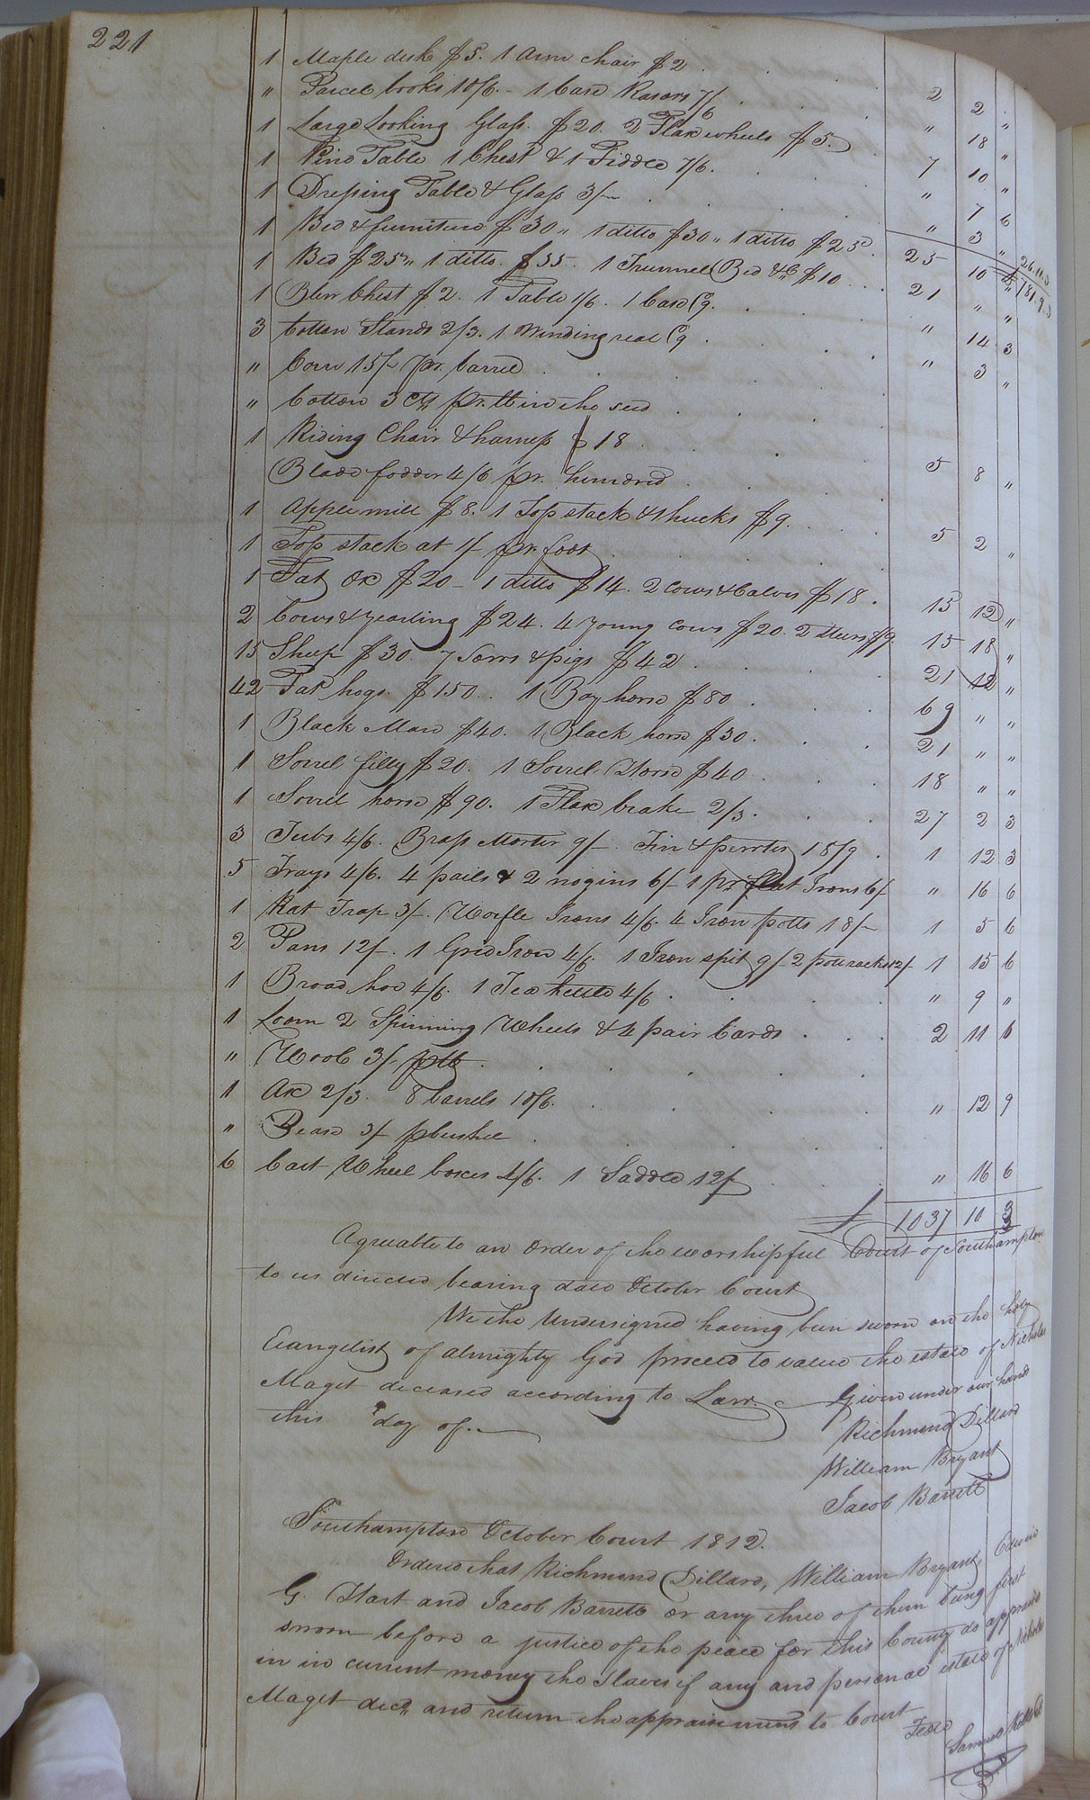 221
1 Maple desk $5. 1 arm chair $2 . . 2 2 "
" Parcel books 10/6 - 1 Case Rasors 7/6 . . " 18 "
1 Large Looking Glass. $20. 2 Flax wheels $5. 7 10 "
1 Pine Table 1 Chest & 1 Fiddle 7/6. . . " 7 6
1 Dressing Table & Glass 3/- . . " 3 "
1 Bed & furniture $30 " 1 ditto $30 " 1 ditto $25. 25 10 "
1 Bed $25 " 1 ditto. $35. 1 Trunnel Bed &c $10 . . 21 " "
1 Blew Chest $2. 1 Table 1/6. 1 Case /9. . " 14 3
3 Cotton Stands 2/3. 1 Winding real /9 . . " 3 "
" Corn 15/- pr. barrel . .
" Cotton 3 Cts pr. lb in the seed .
1 Riding Chair & harness $18 . . 5 8 "
Blade fodder 4/6 pr. hundred .
1 Apple mill $8. 1 Top stack & shucks $9. . 5 2 "
1 Top stack at 1/ pr. foot .
1 Fat Ox $20 - 1 ditto $14. 2 Cows & Calves $18. 15 12 "
2 Cows & yearling $24. 4 young cows $20. 2 steers $9. 15 18 "
15 Sheep $30. 7 Sows & pigs $42 . . 21 12 "
42 Fat hogs. $150. 1 Bay horse $80 . . 69 " "
1 Black Mare $40. 1 Black horse $30. . 21 " "
1 Sorrel filly $20. 1 Sorrel Horse $40 . . 18 " "
1 Sorrel horse $90. 1 Flax brake 2/3. . 27 2 3
3 Tubs 4/6. Brass Morter 9/- Tin & pewter 18/9 . 1 12 3
5 Trays 4/6. 4 pails & 2 nogins 6/ 1 pr flat Irons 6/ " 16 6
1 Rat Trap 3/. Woofle Irons 4/6. 4 Iron potts 18/- 1 5 6
2 Pans 12/. 1 Grid Iron 4/6. 1 Iron spit 9/ 2 pott racks 12/ 1 15 6
1 Broad hoe 4/6. 1 Tea kettle 4/6 . . " 9 "
1 Loom 2 Spinning Wheels & 4 pair Cards . . 2 11 6
" Wool 3/ plb .
1 Ax 2/3. 8 barrels 10/6. . " 12 9
" Pease 3/ pbushel .
6 Cart Wheel boxes 4/6. 1 Saddle 12/ . " 16 6
£ 1037 10 3
Agreable to an order of the worshipful Court of Southampton
to us directed bearing date October Court
We the Undersigned having been sworn on the holy
Evangelist of almighty God proceed to value the estate of Nicholas
Maget deceased according to Law. Given under our hands
this day of.
Richmond Dillard
William Bryant
Jacob Barrett
Southampton October Court 1812.
Ordered that Richmond Dillard, William Bryant, Edwin
G. Hart and Jacob Barrett or any three of them being first
sworn before a justice of the peace for this County do appraise
in in current money the slaves if any and personal estate of Nicholas
Maget decd, and return the appraisement to Court
Teste
Samuel Kello